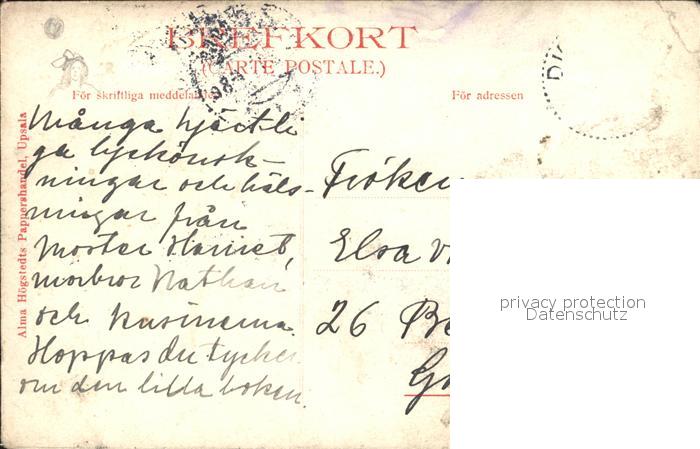 BREFKORT
(CARTE POSTALE.)
För skriftliga meddelanden
För adressen
Alma Högstedts Pappershandel, Upsala
Många hjertli
ga lyckönsk-
ningar och häls-
ningar från
Moster Harriet,
morbror Nathan
och kusinerna.
Hoppas du tycker
om den lilla boken.
Fröken
Elsa v
26 Be
privacy protection
Datenschutz